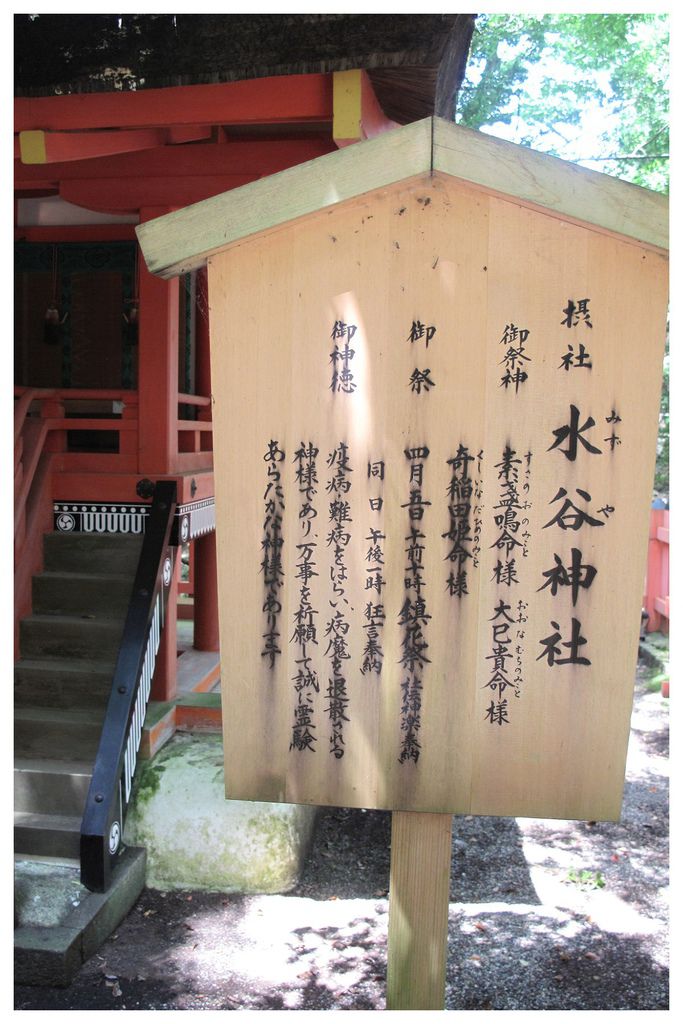 摂社 水谷神社
みずや
御祭神 素盞鳴命様 大巳貴命様
すさのおのみこと おおなむちのみこと
奇稲田姫命様
くしいなだひめのみこと
御祭 四月五日 午前十時 鎮花祭 社伝神楽奉納
同日 午後一時 狂言奉納
御神徳 疫病・難病をはらい、病魔を退散される
神様であり、万事を祈願して誠に霊験
あらたかな神様であります